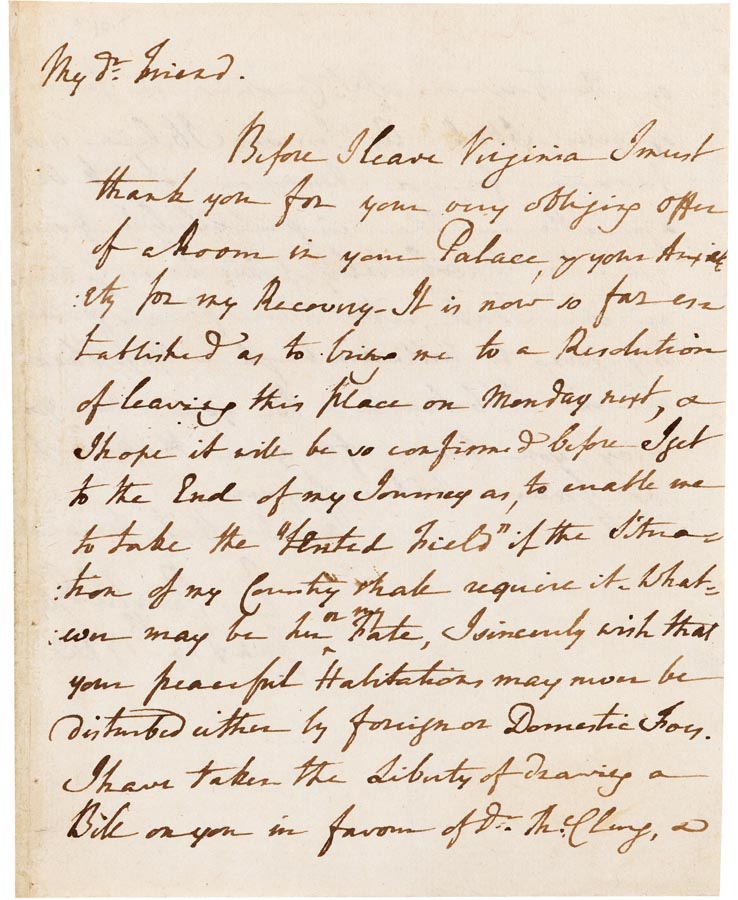 My dr. Friend.
Before I leave Virginia I must
thank you for your very obliging offer
of a Room in your Palace, & your Anxi
:ety for my Recovery - It is now so far es=
tablished as to bring me to a Resolution
of leaving this Place on Monday next, &
I hope it will be so confirmed before I get
to the End of my Journey as, to enable me
to take the "Tented Field" if the Situa=
:tion of my Country shall require it. What=
:ever may be her or my Fate, I sincerely wish that
your peaceful Habitations may never be
disturbed either by foreign or Domestic Foes.
I have taken the Liberty of drawing a
Bill on you in favour of Dr. McClurg, &